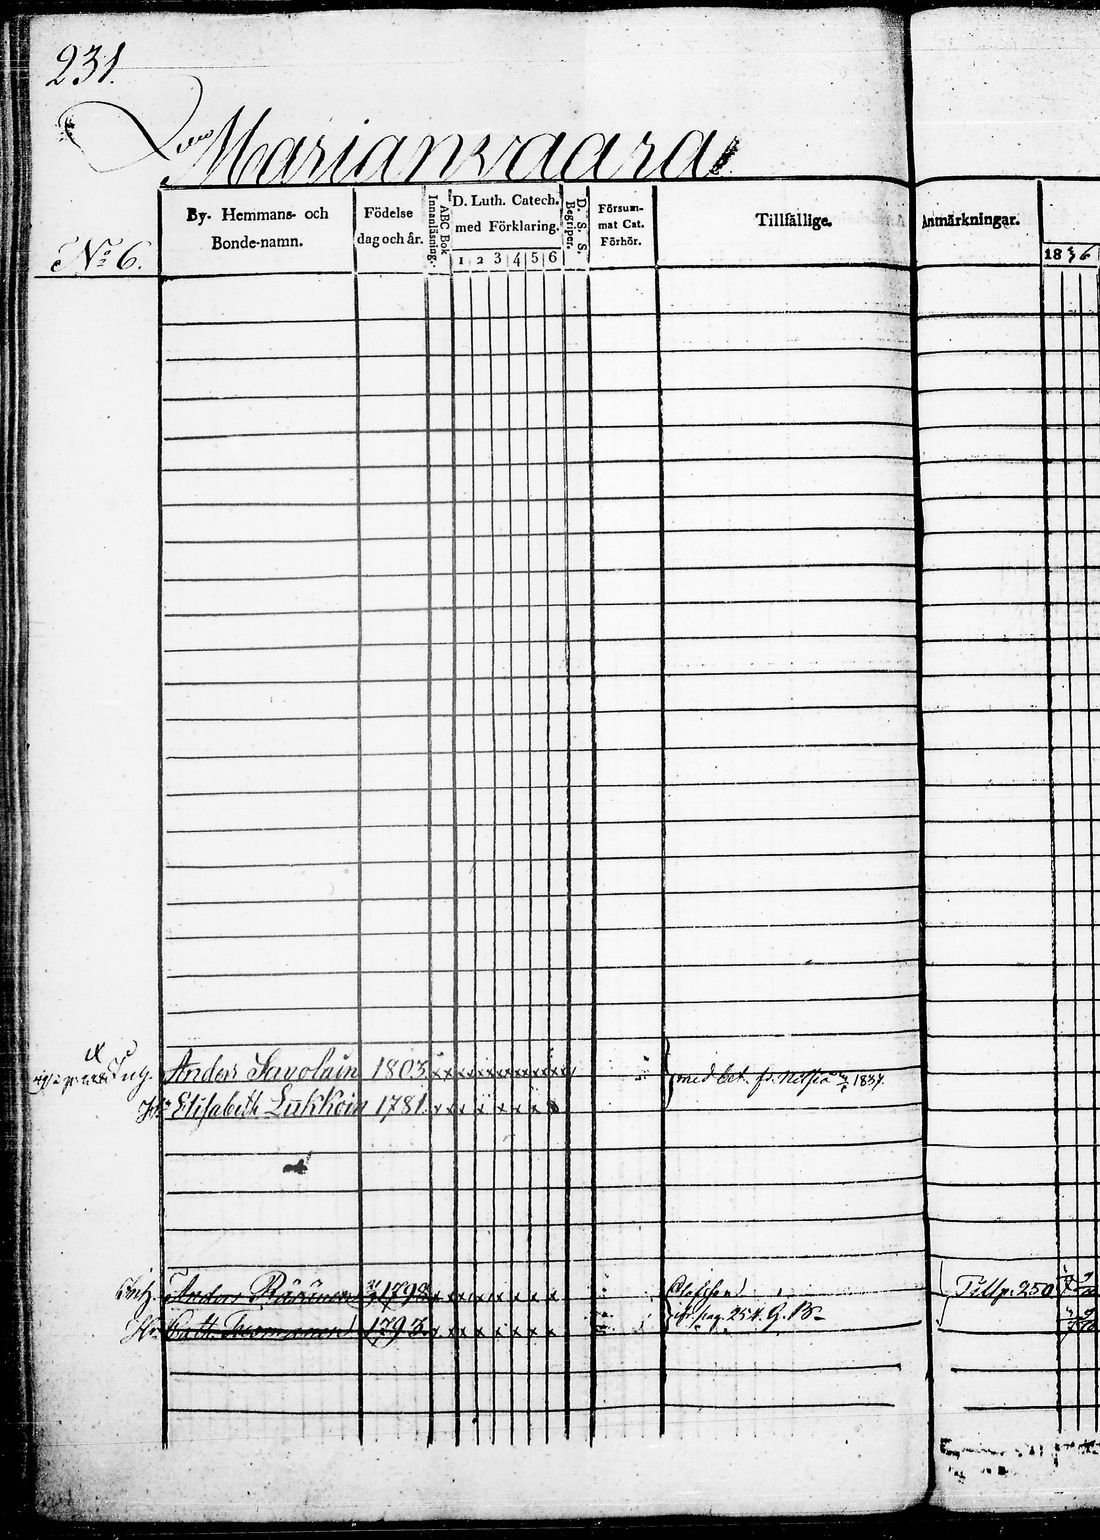 231.
Marianvaara
No 6.
By- Hemmans- och Bonde-namn.
Födelse dag och år.
ABC Bok Innanläsning.
D. Luth. Catech. med Förklaring.
1 2 3 4 5 6
D. S. S. Begriper.
Försummat Cat. Förhör.
Tillfällige.
Anmärkningar.
1836
Anders Savolain 1803 med bet. fr. Nilsiä 1837.
Hu Elisabeth Lukkoin 1781.
Anders Räsänen 1798
Till p. 250
Hu Cath. 1793. fr. pag. 254. G. B.